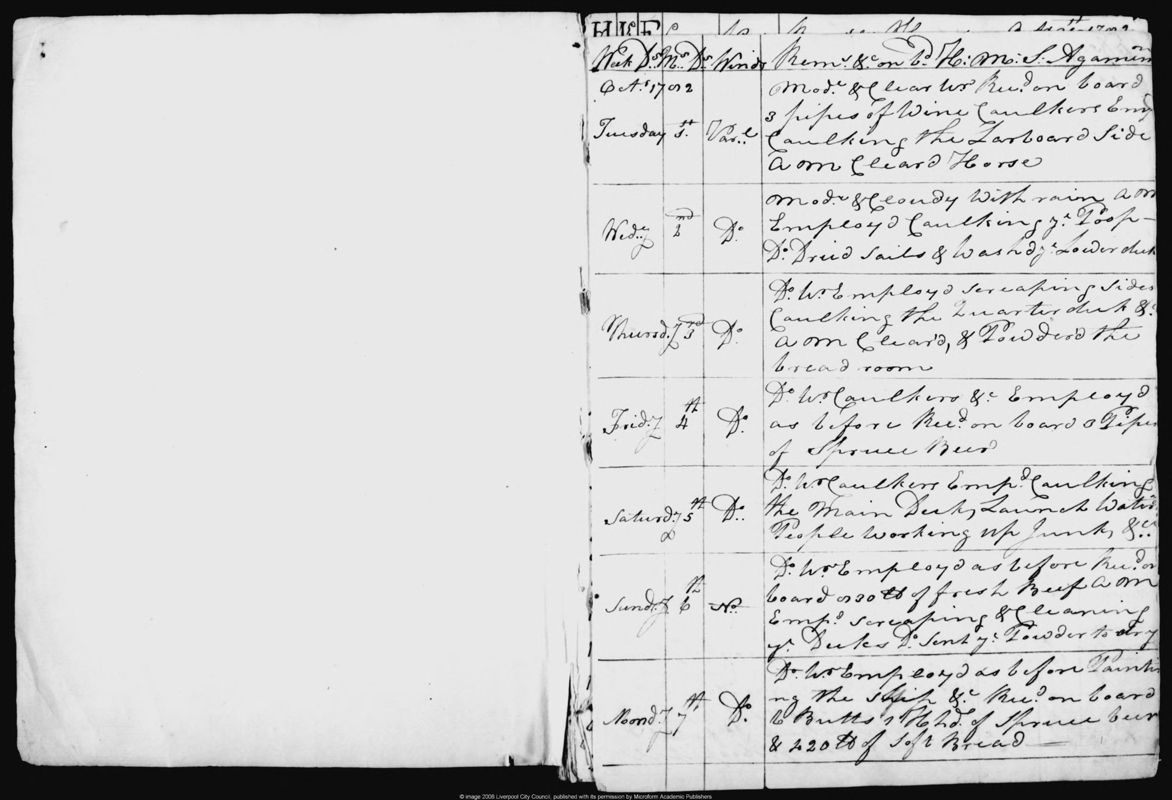 Week Ds. Ms. Ds. Winds Rems. &c on bd. H: M: S: Agamem
Octr. 1782 Modr. & Clear Wr. Recd. on board
3 pipes of Wine Caulkers Emp
Tuesday 1st. Varl. Caulking the Larboard Side
A M Cleard Horse
Modr. & Cloudy With rain A M
Wedy. 2nd Do. Employd Caulking ye. Poop
Do. Dried Sails & Washd ye. Lower deck
Do. Wr. Employd scraping sides
Caulking the Quarter deck &c
Thursdy. 3rd Do. A M Clear'd, & Powder'd the
bread room
Do. Wr. Caulkers &c Employd
Fridy. 4th Do. as before Recd. on board 3 Pipes
of Spruce Beer
Do. Wr. Caulkers Empd. Caulking
Saturdy 5th Do. the Main Deck, Launch Waterg
People Working up Junk, &c
Do. Wr. Employd as before Recd. on
board lb of fresh Beef A M
Sundy. 6th No. Empd. scraping & Cleaning
ye. Decks Do. Sent ye. Powder to dry
Do. Wr. Employd as before Painti
ng the Ship &c Recd. on board
Moondy. 7th Do. 6 Butts 1 Hhd. of Spruce beer
& 220 lb of Soft Bread
© image 2008 Liverpool City Council, published with its permission by Microform Academic Publishers